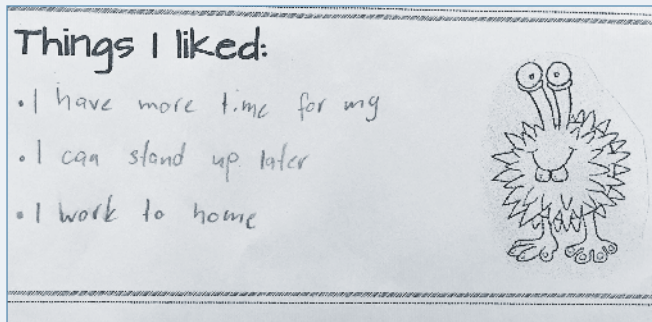 Things I liked:
• I have more time for my
• I can stand up later
• I work to home